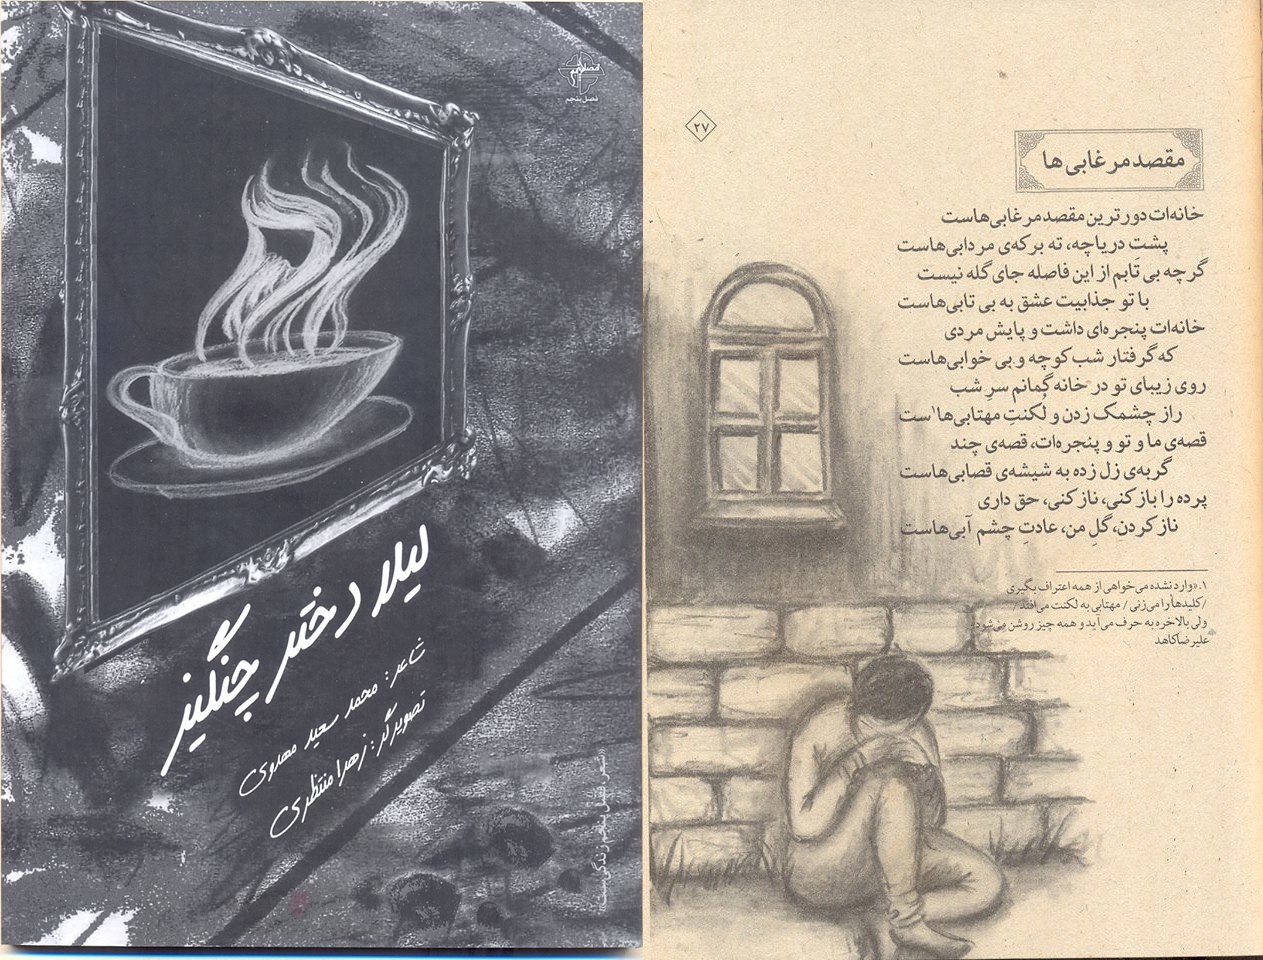 فصل پنجم
لیلا دختر چنگیز
شاعر: محمد سعید مهدوی
تصویرگر: زهرا منتظری
شعر، فصل پنجم زندگی ست
۲۷
مقصد مرغابی‌ها
خانه‌ات دورترین مقصد مرغابی‌هاست
پشتِ دریاچه، ته برکه‌ی مردابی‌هاست
گرچه بی تابم از این فاصله جای گله نیست
با تو جذابیت عشق به بی تابی‌هاست
خانه‌ات پنجره‌ای داشت و پایش مردی
که گرفتار شب کوچه و بی خوابی‌هاست
روی زیبای تو در خانه گمانم سرِ شب
راز چشمک زدن و لکنتِ مهتابی‌ها۱ست
قصه‌ی ما و تو و پنجره‌ات، قصه‌ی چند
گربه‌ی زل زده به شیشه‌ی قصابی‌هاست
پرده را باز کنی، ناز کنی، حق داری
ناز کردن، گلِ من، عادتِ چشم آبی‌هاست
۱. «وارد نشده می‌خواهی از همه اعتراف بگیری
/کلیدها را می‌زنی / مهتابی به لکنت می‌افتد/
ولی بالاخره به حرف می‌آید و همه چیز روشن می‌شود»
علیرضا کاهد